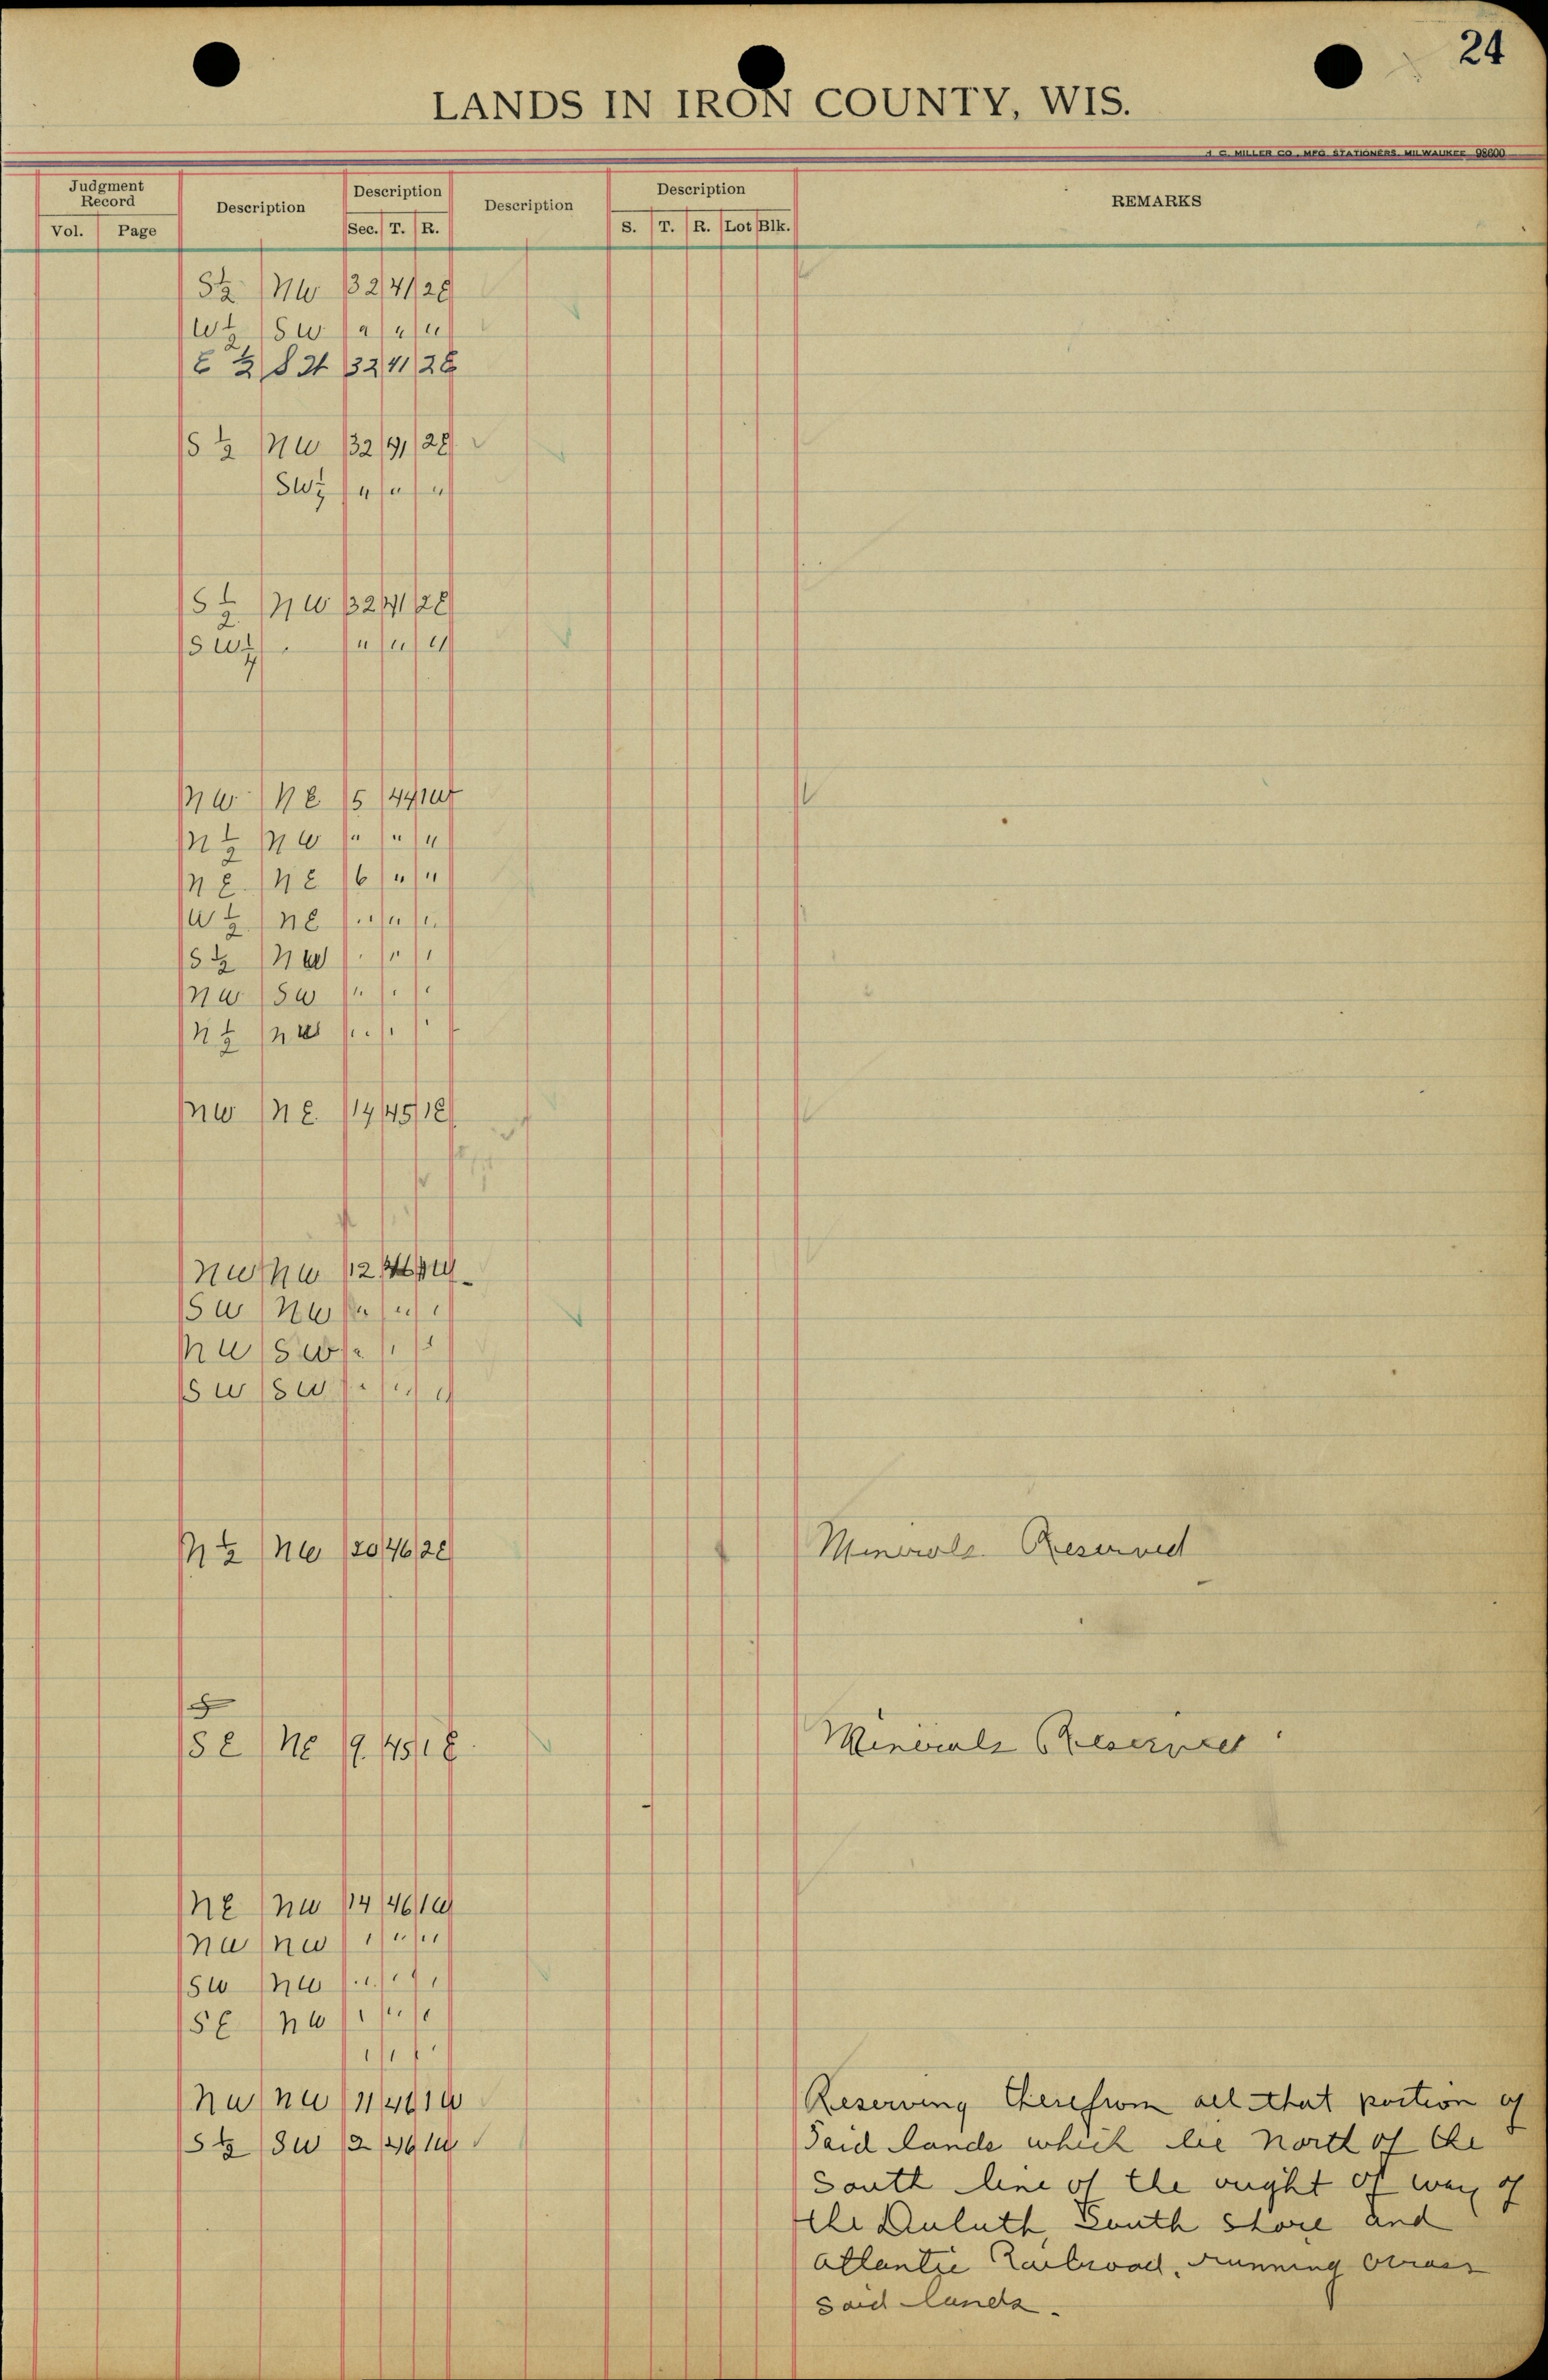 24
LANDS IN IRON COUNTY, WIS.
H. C. MILLER CO., MFG STATIONERS, MILWAUKEE 98600
Judgment Record Description Description Description Description REMARKS
Vol. Page Sec. T. R. S. T. R. Lot Blk.
S½ NW 32 41 2E
W½ SW " " "
E½ 32 41 2E
S½ NW 32 41 2E
SW¼ " " "
S½ NW 32 41 2E
SW¼ " " "
NW NE 5 44 1W
N½ NW " " "
NE NE 6 " "
W½ NE " " "
S½ NW " " "
NW SW " " "
N½ NW " " "
NW NE 14 45 1E
NW NW 12 46
SW NW " " "
NW SW " " "
SW SW " " "
N½ NW 20 46 2E Minerals Reserved
SE NE 9 45 1E Minerals Reserved
NE NW 14 46 1W
NW NW " " "
SW NW " " "
SE NW " " "
" " "
NW NW 11 46 1W Reserving therefrom all that portion of
S½ SW 2 46 1W Said lands which lie North of the
South line of the right of way of
the Duluth, South Shore and
Atlantic Railroad, running across
said lands.